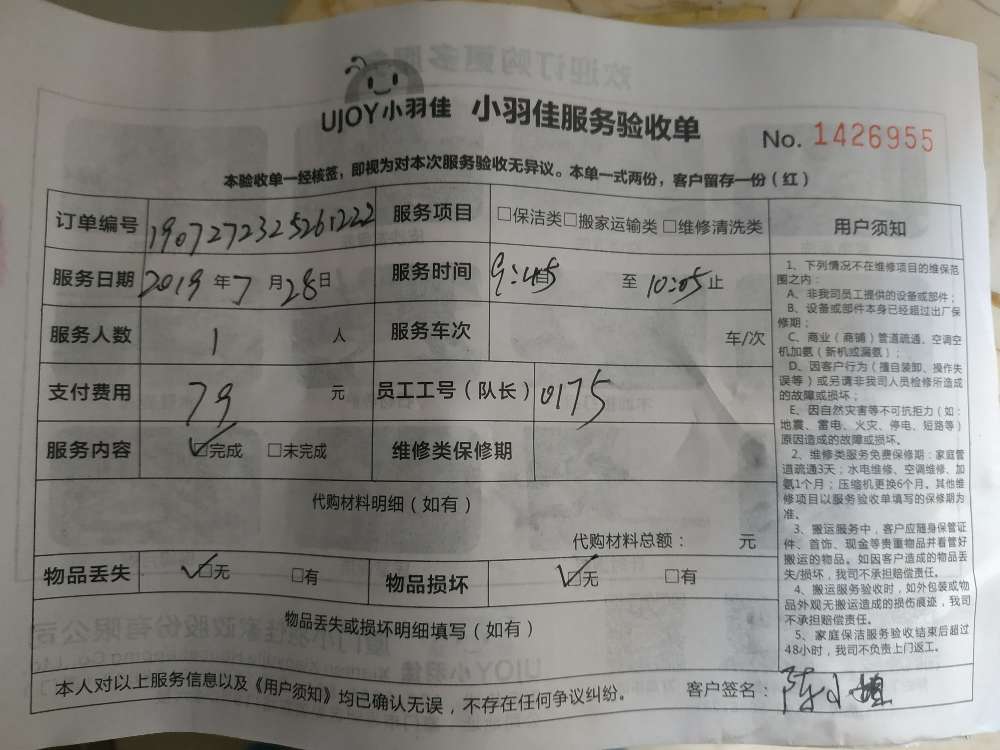 UJOY小羽佳 小羽佳服务验收单 No. 1426955
本验收单一经核签，即视为对本次服务验收无异议。本单一式两份，客户留存一份（红）
订单编号 1907272325261222 服务项目 □保洁类□搬家运输类 □维修清洗类
服务日期 2019 年 7 月 28 日 服务时间 9:45 至 10:05 止
服务人数 1 人 服务车次 车/次
支付费用 79 元 员工工号（队长）0175
服务内容 ☑完成 □未完成 维修类保修期
代购材料明细（如有）
代购材料总额： 元
物品丢失 ☑无 □有 物品损坏 ☑无 □有
物品丢失或损坏明细填写（如有）
本人对以上服务信息以及《用户须知》均已确认无误，不存在任何争议纠纷。 客户签名：陈小姐
用户须知
1、下列情况不在维修项目的维保范
围之内：
A、非我司员工提供的设备或部件；
B、设备或部件本身已经超过出厂保
修期；
C、商业（商铺）管道疏通、空调空
机加氨（新机或漏氨）；
D、因客户行为（擅自装卸、操作失
误等）或另请非我司人员检修所造成
的故障或损坏；
E、因自然灾害等不可抗拒力（如：
地震、雷电、火灾、停电、短路等）
原因造成的故障或损坏。
2、维修类服务免费保修期：家庭管
道疏通3天；水电维修、空调维修、加
氨1个月；压缩机更换6个月。其他维
修项目以服务验收单填写的保修期为
准。
3、搬运服务中，客户应随身保管证
件、首饰、现金等贵重物品并看管好
搬运的物品。如因客户造成的物品丢
失/损坏，我司不承担赔偿责任。
4、搬运服务验收时，如外包装或物
品外观无搬运造成的损伤痕迹，我司
不承担赔偿责任。
5、家庭保洁服务验收结束后超过
48小时，我司不负责上门返工。